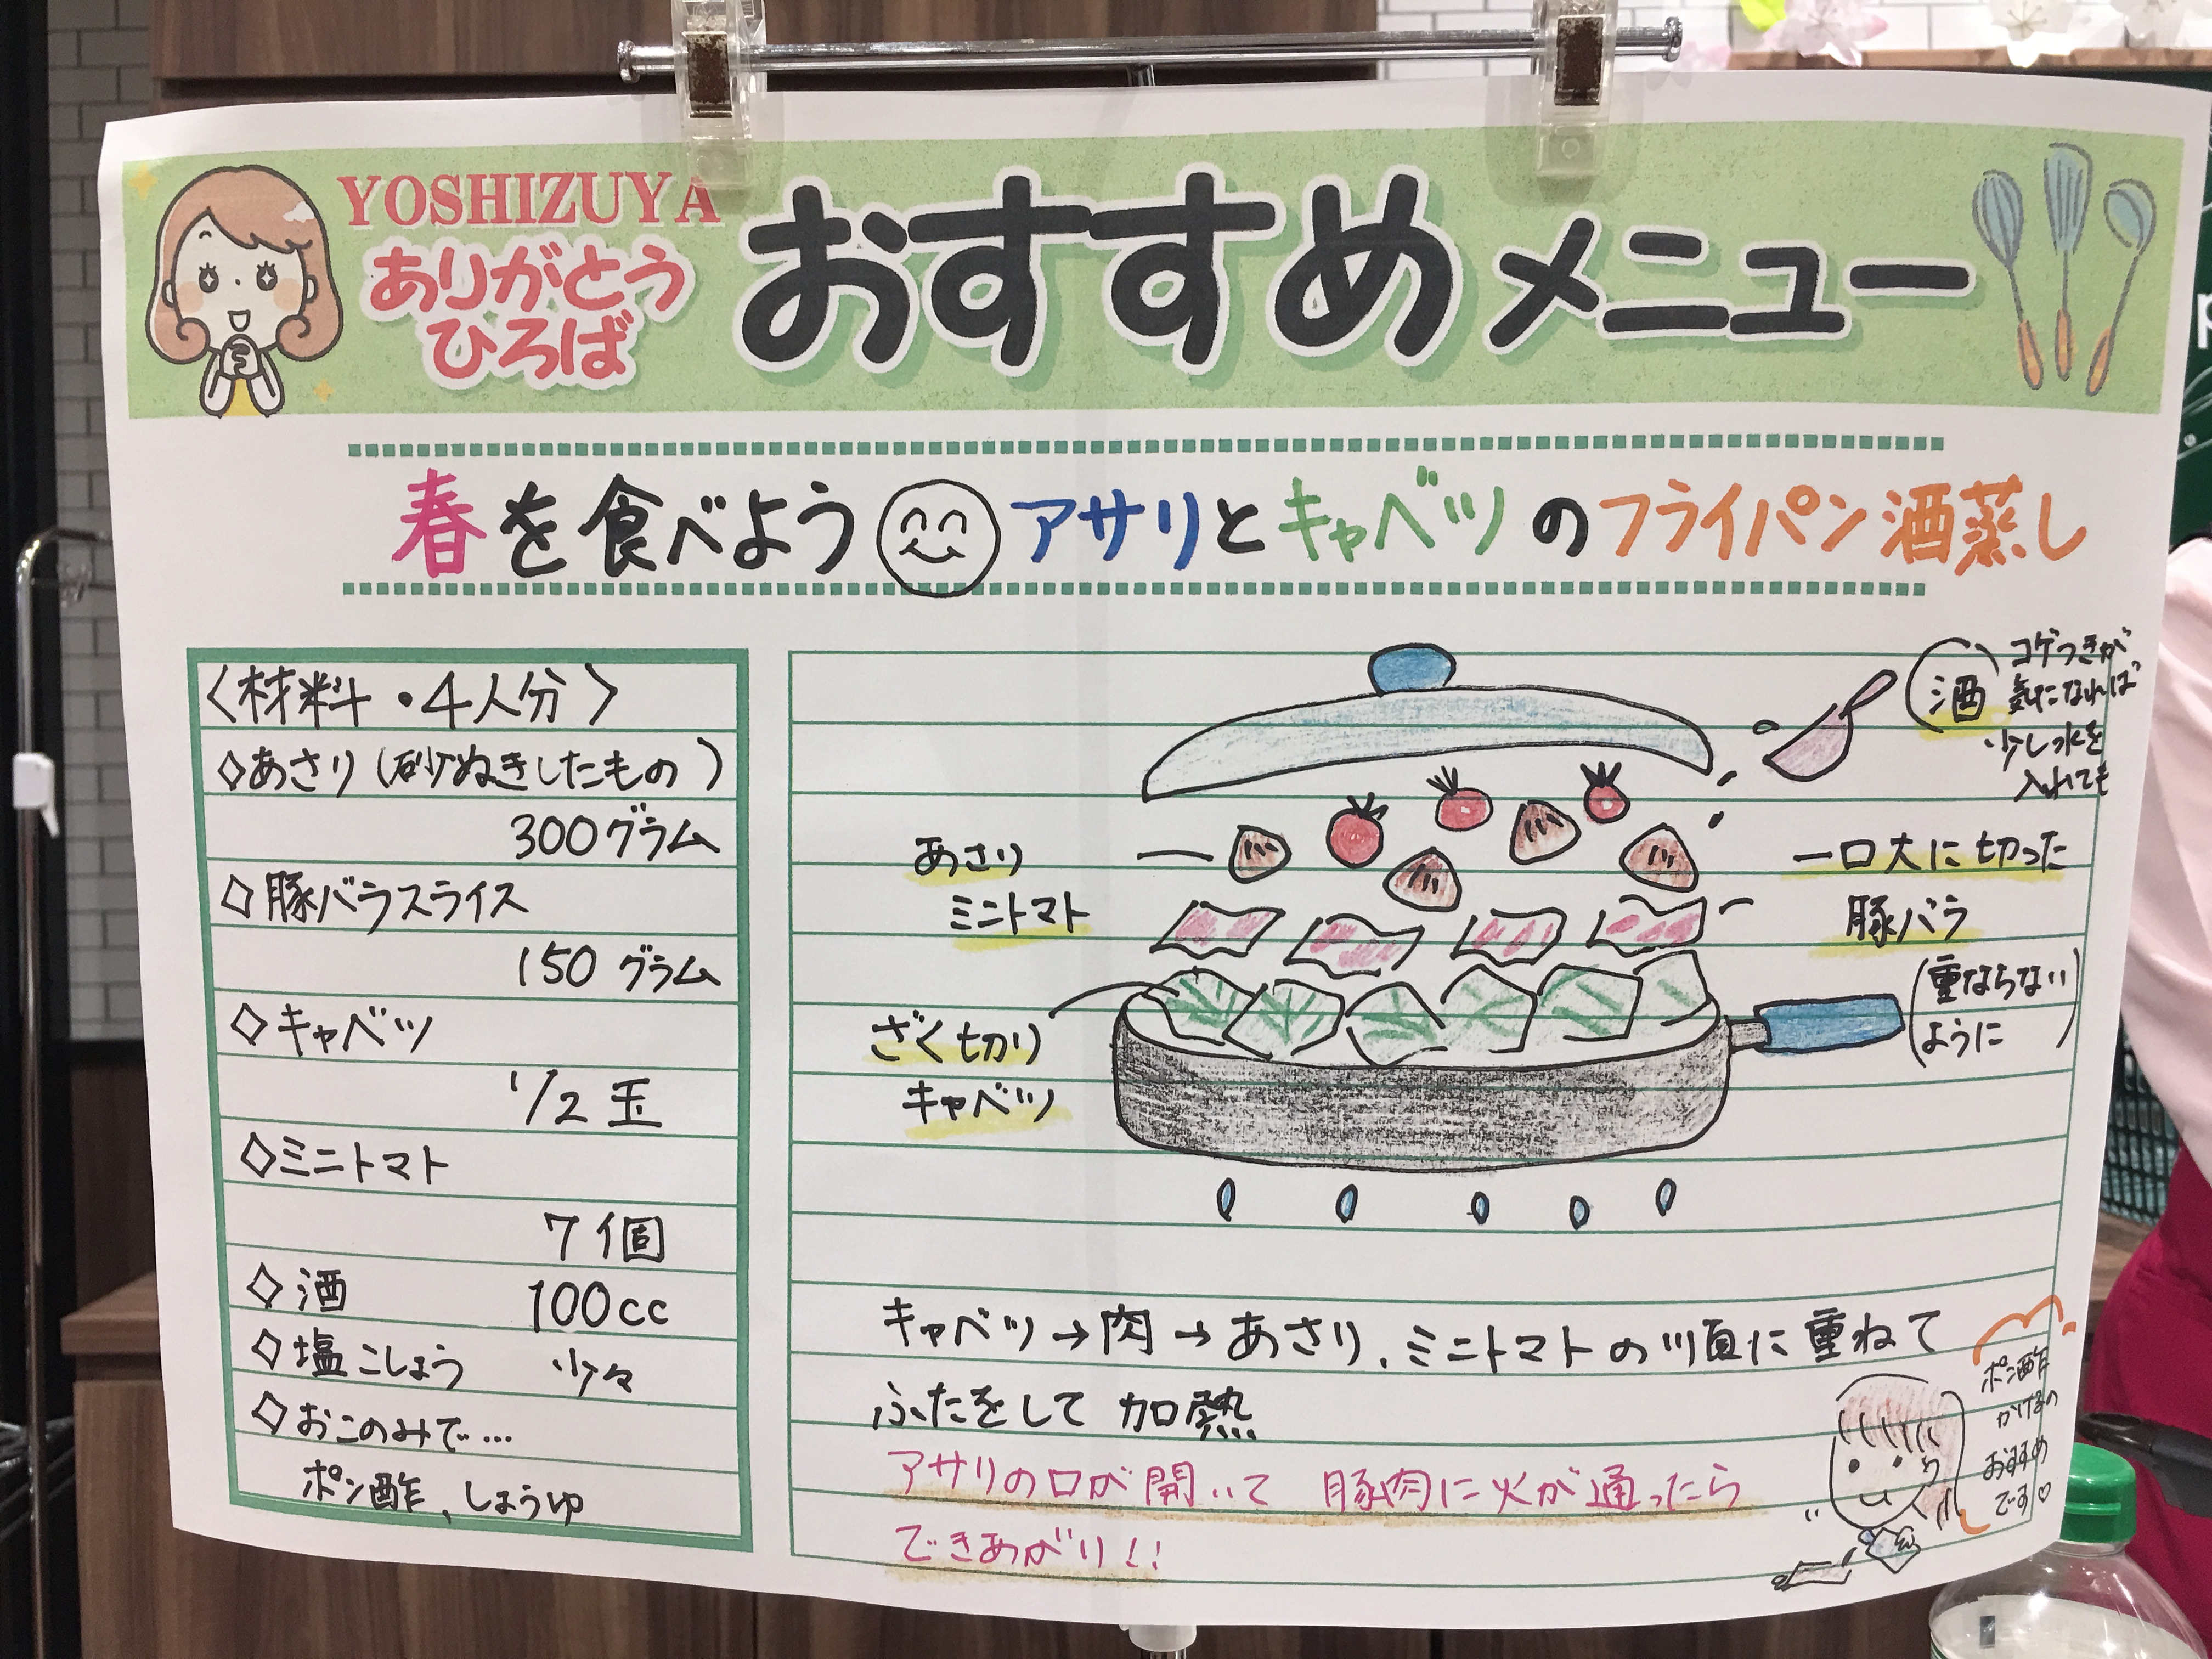 YOSHIZUYA
ありがとう
ひろば
おすすめメニュー
春を食べよう アサリとキャベツのフライパン酒蒸し
〈材料・4人分〉
◇あさり(砂ぬきしたもの)
300グラム
◇豚バラスライス
150グラム
◇キャベツ
1/2玉
◇ミニトマト
7個
◇酒 100cc
◇塩こしょう 少々
◇おこのみで…
ポン酢、しょうゆ
酒
コゲつきが
気になれば
少し水を
入れても
あさり
ミニトマト
一口大に切った
豚バラ
(重ならない
ように)
ざく切り
キャベツ
キャベツ→肉→あさり、ミニトマトの順に重ねて
ふたをして 加熱
アサリの口が開いて 豚肉に火が通ったら
できあがり!!
ポン酢
かけるの
おすすめ
です♡